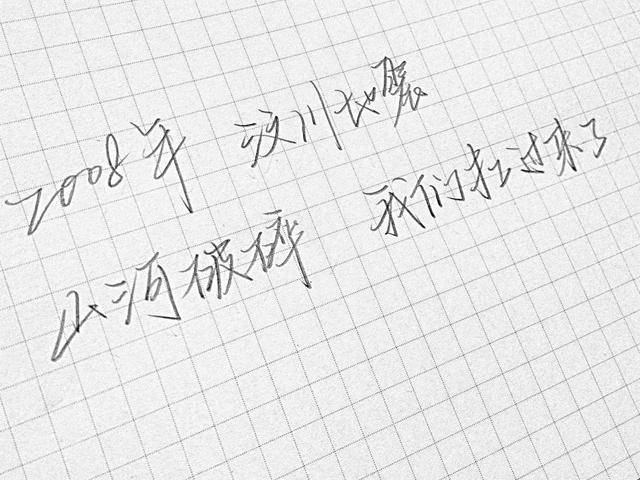 2008年 汶川地震
山河破碎 我们扛过来了